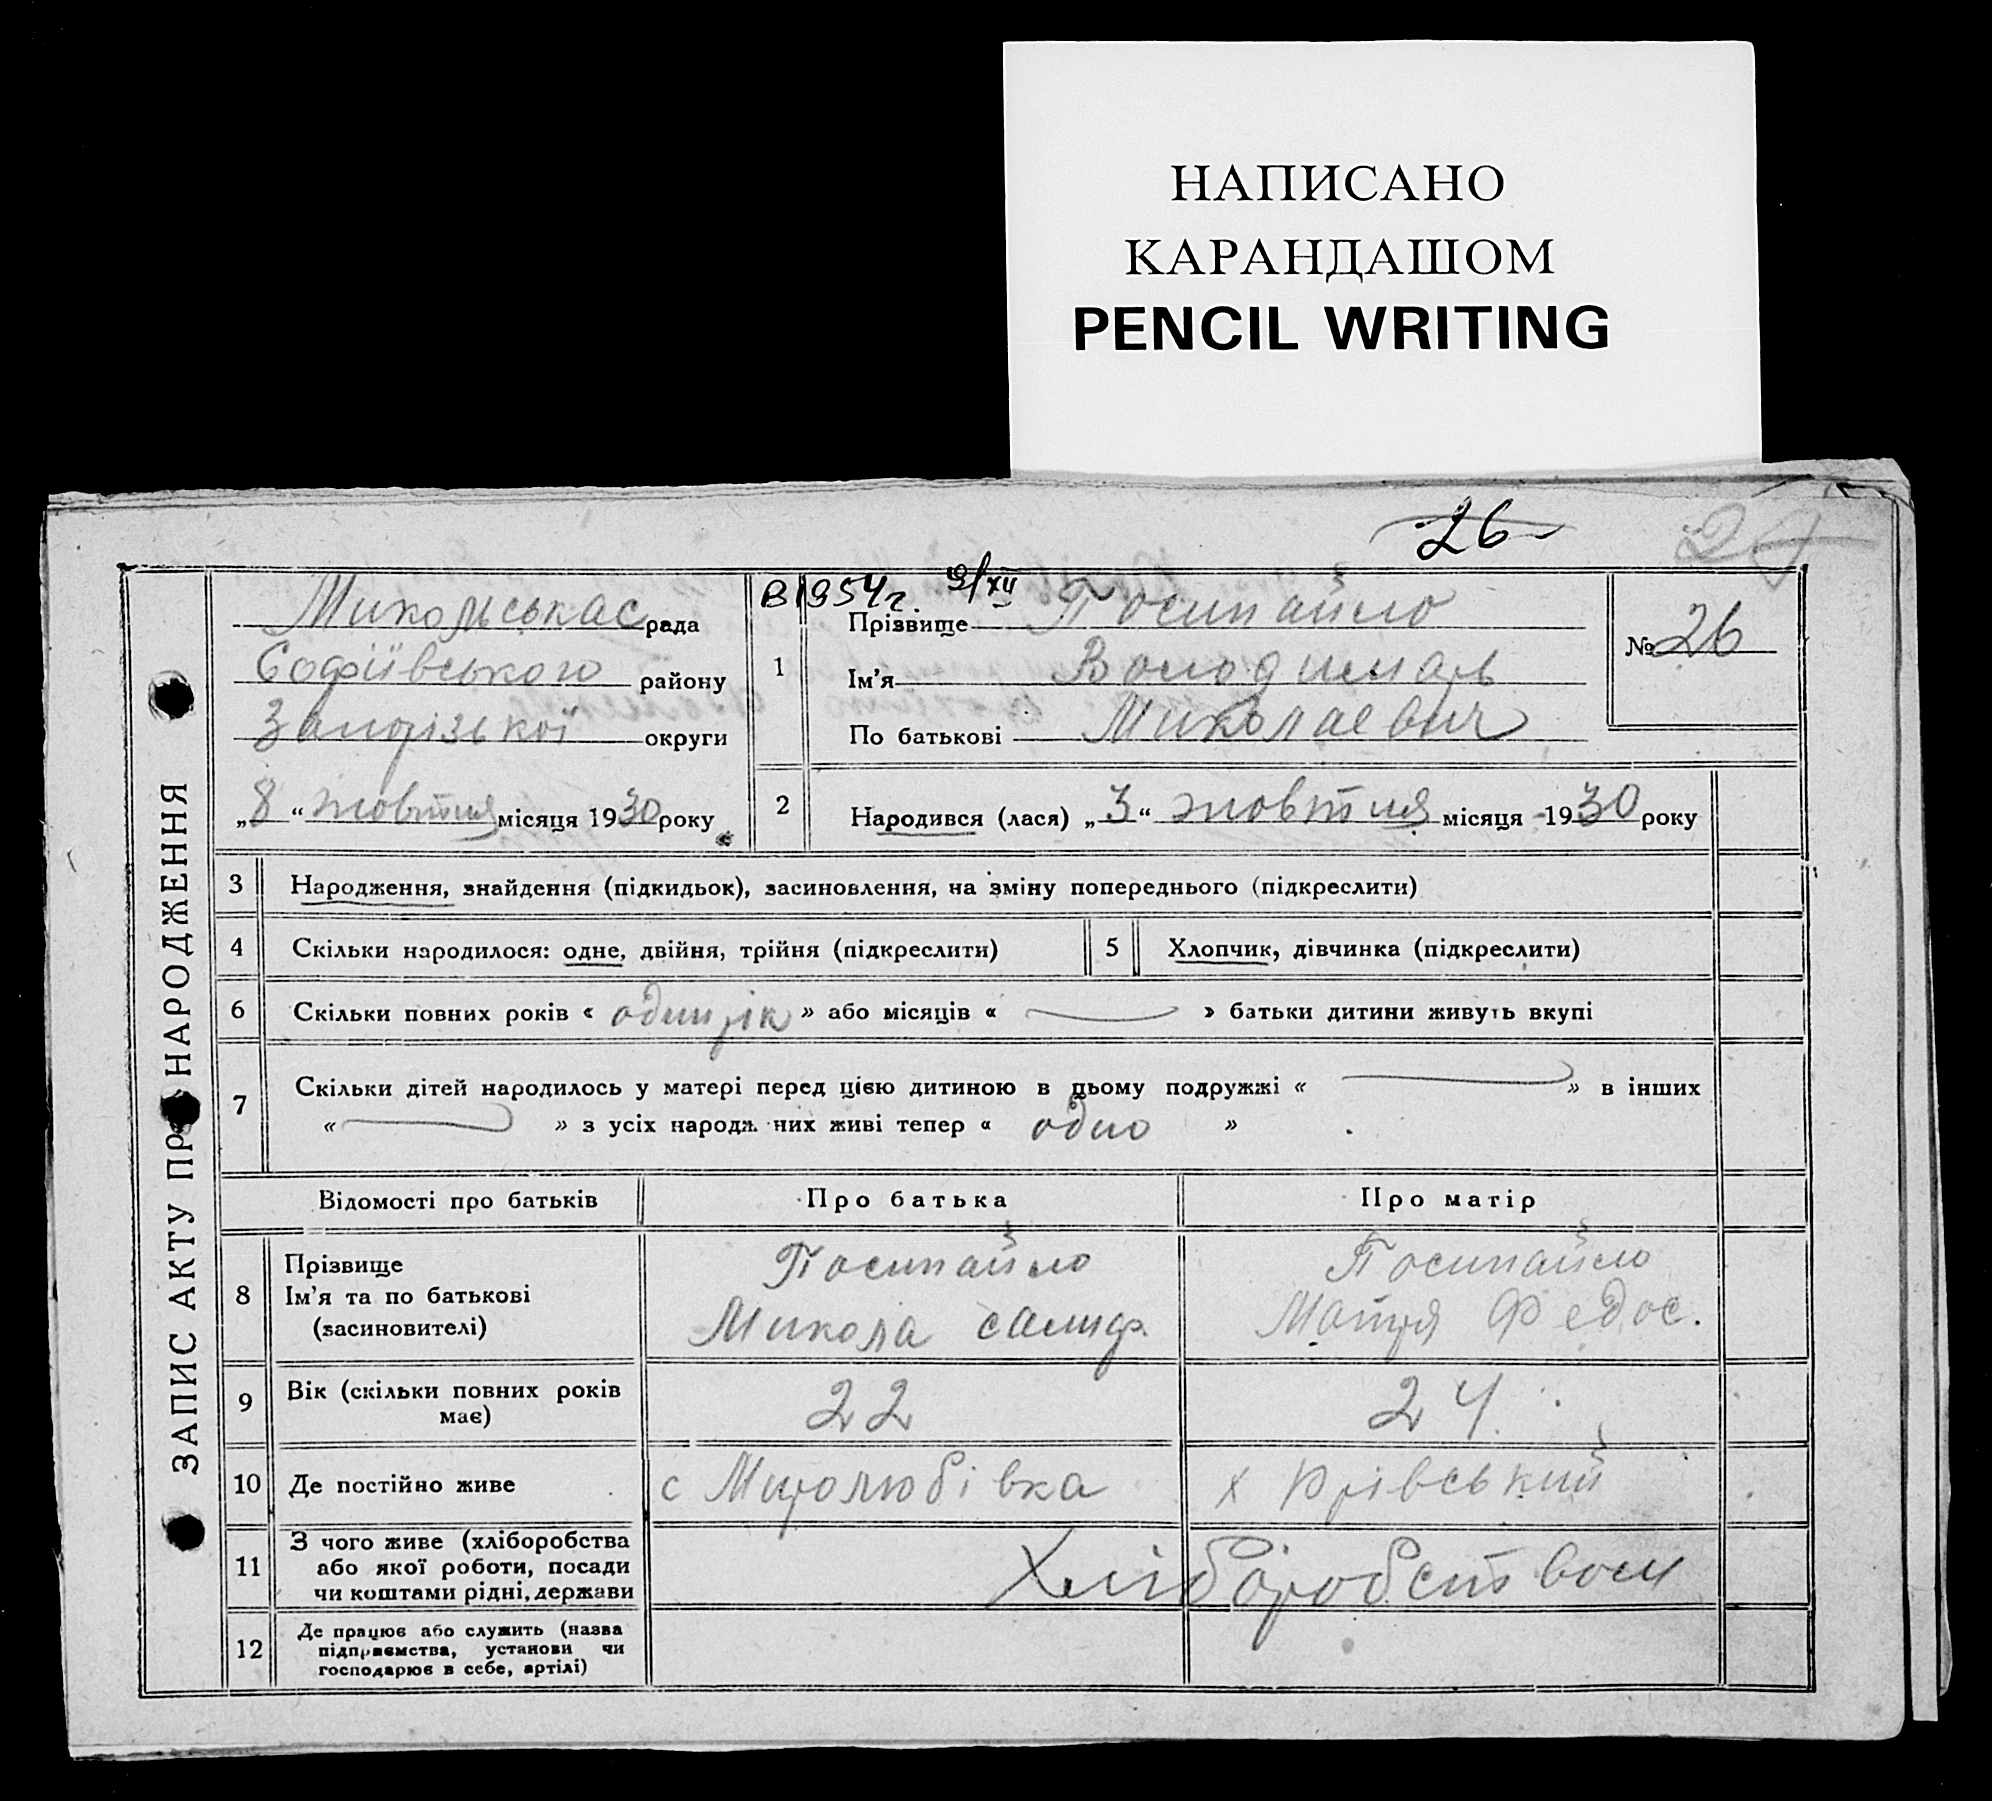 НАПИСАНО
КАРАНДАШОМ
PENCIL WRITING
26
ЗАПИС АКТУ ПР НАРОДЖЕННЯ
Микольська с рада
Софіївського району
Запорізької округи
„8“ жовтня місяця 1930 року
В 1954 г. 9/XII
1 Прізвище Посипайло
Ім’я Володимар
По батькові Миколаевич
№ 26
2 Народився (лася) „3“ жовтня місяця 1930 року
3 Народження, знайдення (підкидьок), засиновлення, на зміну попереднього (підкреслити)
4 Скільки народилося: одне, двійня, трійня (підкреслити)
5 Хлопчик, дівчинка (підкреслити)
6 Скільки повних років « один рік » або місяців « » батьки дитини живуть вкупі
7 Скільки дітей народилось у матері перед цією дитиною в цьому подружжі « » в інших
« » з усіх народж них живі тепер « одно »
Відомості про батьків Про батька Про матір
8 Прізвище
Ім’я та по батькові
(засиновителі)
Посипайло
Микола
Посипайло
Мотря Федос.
9 Вік (скільки повних років
має)
22
24
10 Де постійно живе
с Миролюбівка
х Юрівський
11 З чого живе (хліборобства
або якої роботи, посади
чи коштами рідні, держави
Хліборобством
12 Де працює або служить (назва
підприємства, установи чи
господарює в себе, артілі)